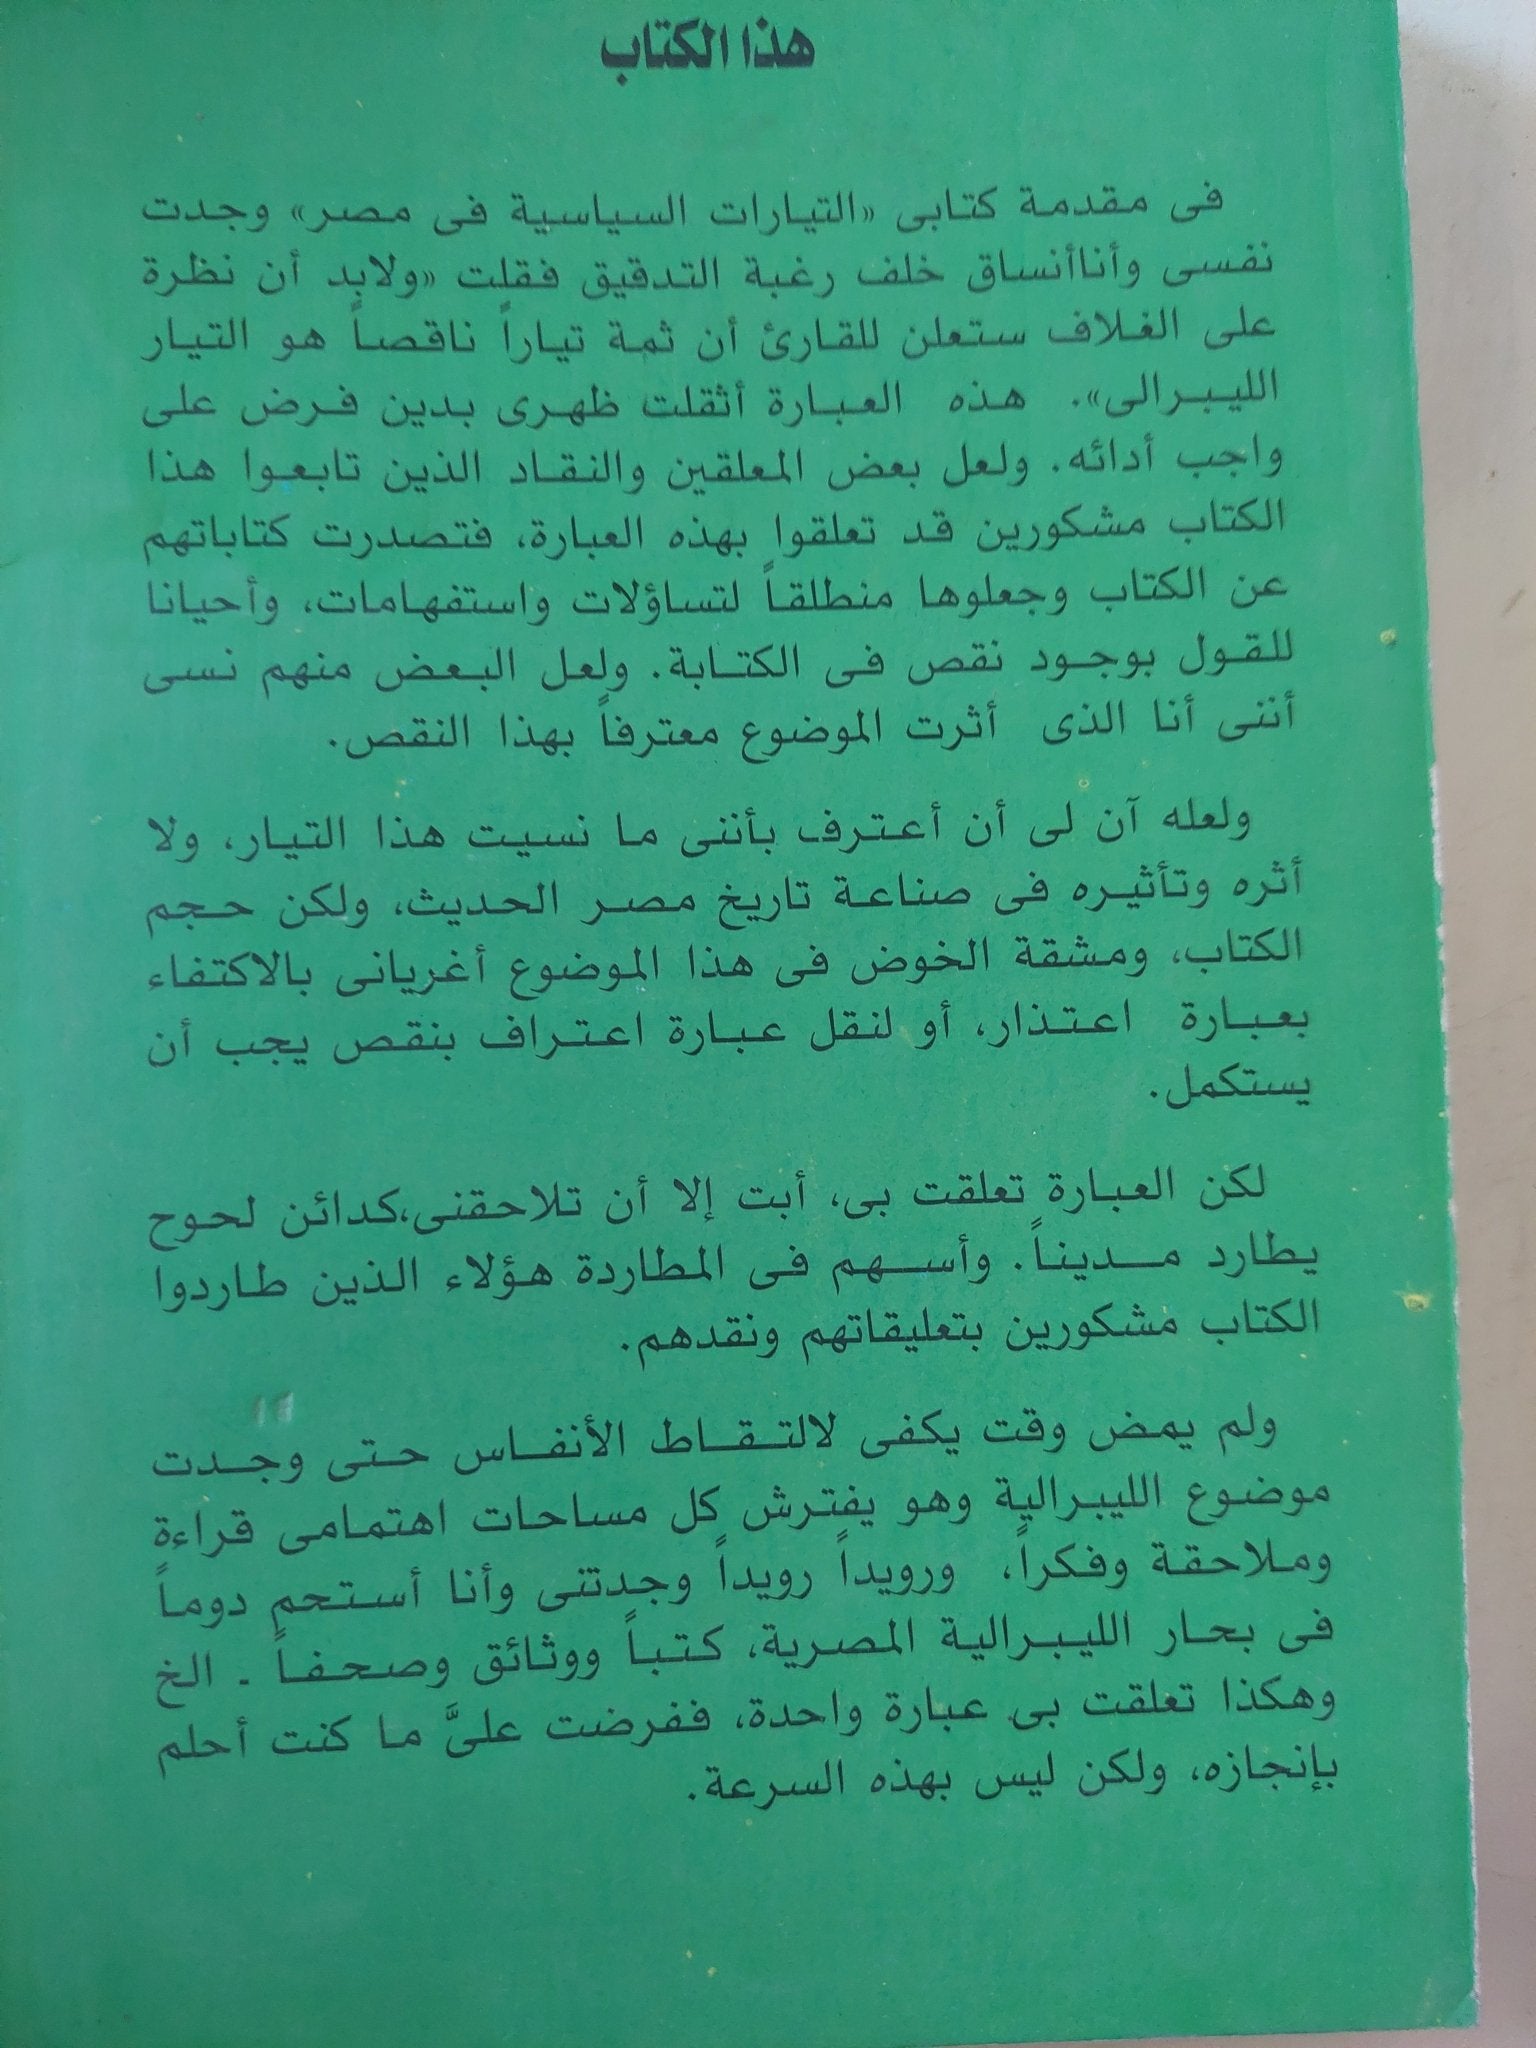 هذا الكتاب
فى مقدمة كتابى «التيارات السياسية فى مصر» وجدت
نفسى وأناأنساق خلف رغبة التدقيق فقلت «ولابد أن نظرة
على الغلاف ستعلن للقارئ أن ثمة تياراً ناقصاً هو التيار
الليبرالى». هذه العبارة أثقلت ظهرى بدين فرض على
واجب أدائه. ولعل بعض المعلقين والنقاد الذين تابعوا هذا
الكتاب مشكورين قد تعلقوا بهذه العبارة، فتصدرت كتاباتهم
عن الكتاب وجعلوها منطلقاً لتساؤلات واستفهامات، وأحيانا
للقول بوجود نقص فى الكتابة. ولعل البعض منهم نسى
أننى أنا الذى أثرت الموضوع معترفاً بهذا النقص.
ولعله آن لى أن أعترف بأننى ما نسيت هذا التيار، ولا
أثره وتأثيره فى صناعة تاريخ مصر الحديث، ولكن حجم
الكتاب، ومشقة الخوض فى هذا الموضوع أغريانى بالاكتفاء
بعبارة اعتذار، أو لنقل عبارة اعتراف بنقص يجب أن
يستكمل.
لكن العبارة تعلقت بى، أبت إلا أن تلاحقنى،كدائن لحوح
يطارد مديناً. وأسهم فى المطاردة هؤلاء الذين طاردوا
الكتاب مشكورين بتعليقاتهم ونقدهم.
ولم يمض وقت يكفى لالتقاط الأنفاس حتى وجدت
موضوع الليبرالية وهو يفترش كل مساحات اهتمامى قراءة
وملاحقة وفكراً، ورويداً رويداً وجدتنى وأنا أستحم دوماً
فى بحار الليبرالية المصرية، كتباً ووثائق وصحفاً . الخ
وهكذا تعلقت بى عبارة واحدة، ففرضت علىَّ ما كنت أحلم
بإنجازه، ولكن ليس بهذه السرعة.